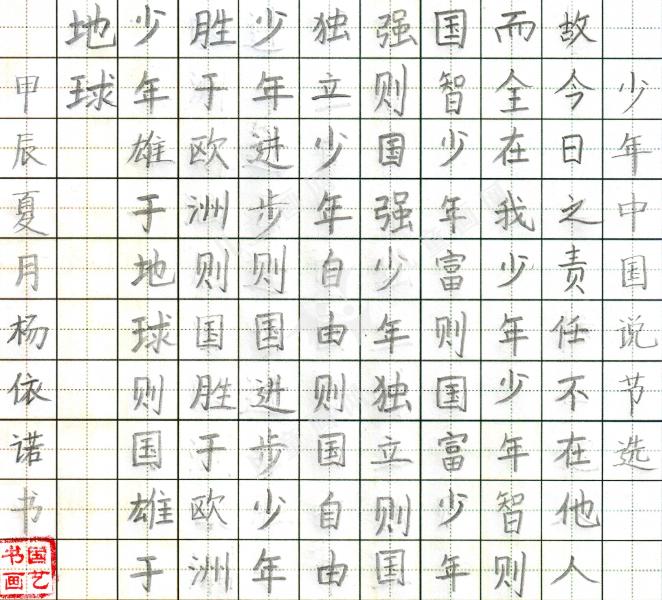 少年中国说节选
故今日之责任不在他人
而全在我少年少年智则
国智少年富则国富少年
强则国强少年独立则国
独立少年自由则国自由
少年进步则国进步少年
胜于欧洲则国胜于欧洲
少年雄于地球则国雄于
地球
甲辰夏月杨依诺书
国艺书画